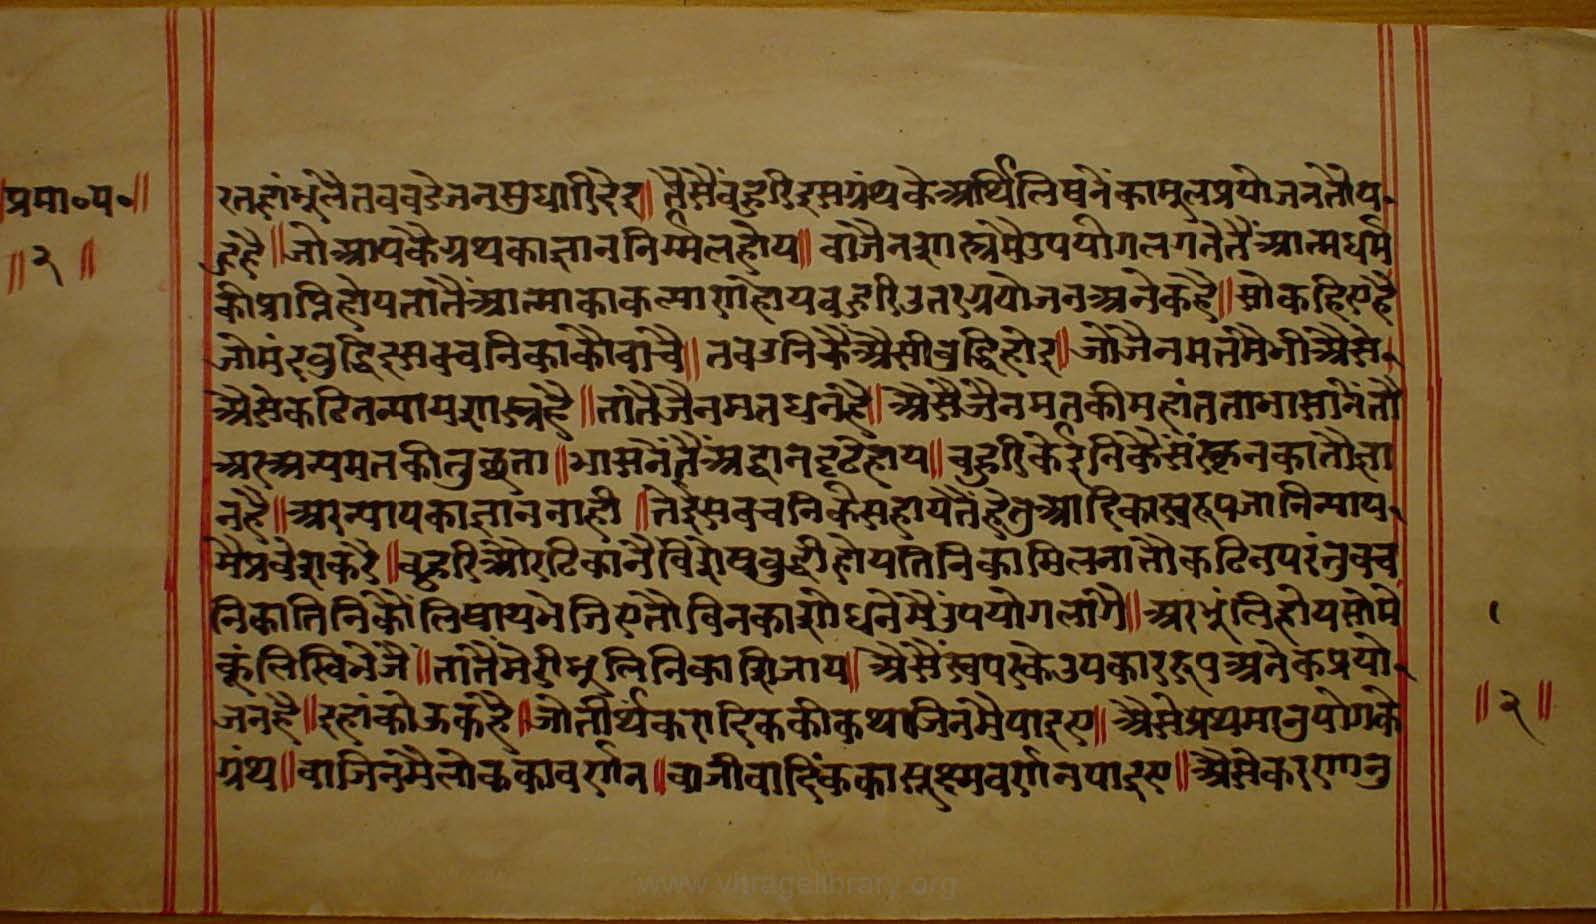 प्रमा०प०॥
॥२॥
रत हां भुलै तब वडे जन सुधारी देइ॥ तैसैं बहुरी इस ग्रंथ के अर्थि लिषनें का मुल प्रयोजन तौ य-
हु है॥ जो आपकै ग्रथ का ज्ञान निर्म्मल होय॥ वा जैन शास्त्र मै उपयोग लगतै तैं आत्मधर्म
की प्राप्ति होय ता तैं आत्मा का कल्याण होय बहुरी उतर प्रयोजन अनेक है॥ सो कहिए है
जो मंदबुद्धि इस वचनिका कौ वाचै॥ तब उनिकैं अैसी बुद्धि होइ॥ जो जैनमत मै भी अैसे-
अैसे कठिन न्याय शास्त्र है॥ तातै जैनमत धन्य है॥ अैसै जैनमत की महांतता भासनें तौ
अर अन्यमत की तुछता॥ भासनैं तैं श्रद्धान दृढ होय॥ बहुरी केई निकै संस्कृत का तौ ज्ञा
न है॥ अर न्याय का ज्ञान नाही॥ ते इस वचनिकै सहाय तैं हेतु आदि का स्वरूप जानि न्याय-
मै प्रवेश करै॥ बहुरि और टिकानै विशेष बुद्धी होय तिनि का मिलना तौ कठिन परंतु वच
निका तिनिकौं लिषाय भेजिए तौ विन का शोधने मैं उपयोग लागै॥ अर भुंलि होय सो मे
कूं लिखि भेजै॥ तातैं मेरी भुलि निकाशि जाय॥ अैसैं स्वपर के उपकार रूप अनेक प्रयो-
जन है॥ इहां कोऊ कहै॥ जो तीर्थंकरादिक की कथा जिनमै पाइए॥ अैसे प्रथमानुयोग के
ग्रंथ॥ वा जिनमै लोक का वर्णन॥ वा जीवादिक का सूक्ष्म वर्णन पाइए॥ अैसे करणानु
॥२॥
www.vitragelibrary.org